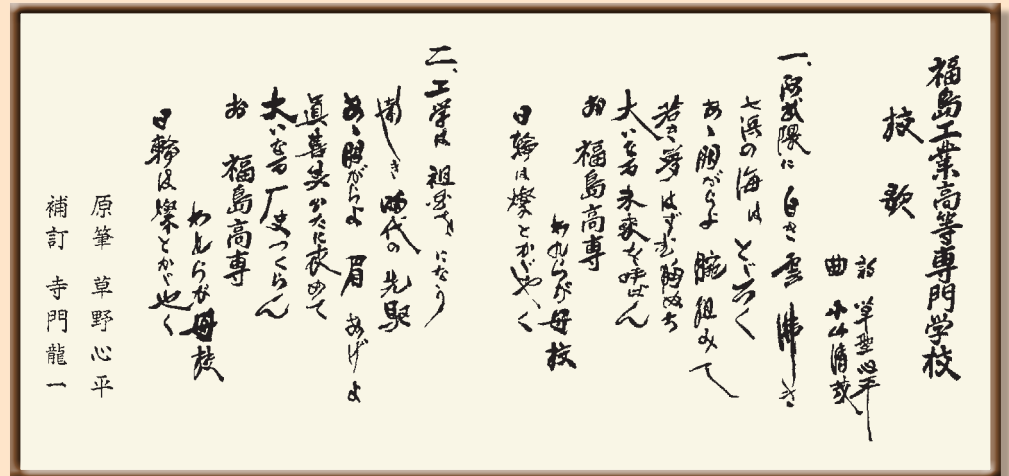 福島工業高等専門学校
校歌
詩 草野心平
曲 小山清茂
一、阿武隈に 白き雲 沸き
七浜の海は とどろく
あゝ朋がらよ 腕組みて
若き夢はずむ胸ぬち
大いなる未来を呼ばん
お 福島高専
われらが母校
日輪は燦とかがやく
二、工学は 祖国を になう
新しき 時代の先駆
あゝ朋がらよ 眉 あげよ
眞善美 求めて
大いなる厂史つくらん
お 福島高専
われらが母校
日輪は燦とかがやく
原筆 草野心平
補訂 寺門龍一